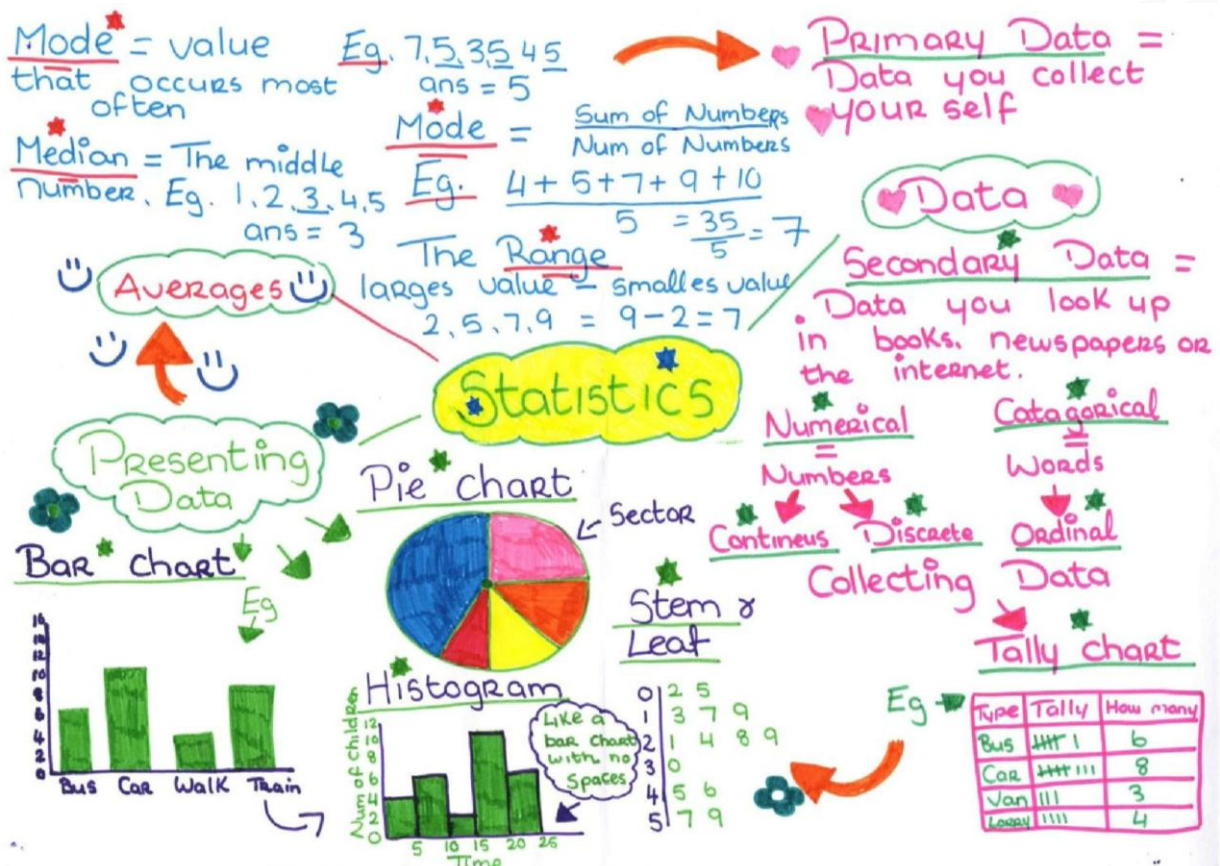 Mode = value
that occurs most
often
Eg. 7,5,3,5 4 5
ans = 5
Median = The middle
number. Eg. 1,2,3,4,5
ans = 3
Mode = Sum of Numbers
Num of Numbers
Eg. 4 + 5 + 7 + 9 + 10
5 = 35
5 = 7
The Range
larges value - smalles value
2, 5, 7, 9 = 9 - 2 = 7
Averages
Primary Data =
Data you collect
your self
Data
Secondary Data =
Data you look up
in books, newspapers or
the internet.
Statistics
Numerical
=
Numbers
Contineus Discrete
Catagorical
=
Words
Ordinal
Collecting Data
Tally chart
Eg
Type Tally How many
Bus 𝍸 I 6
Car 𝍸 III 8
Van III 3
Lorry IIII 4
Presenting
Data
Bar chart
Eg
16
14
12
10
8
6
4
2
0
Bus Car Walk Train
Pie chart
Sector
Histogram
Like a
bar chart
with no
Spaces
Num of Children
12
10
8
6
4
2
0
5 10 15 20 25
Time
Stem &
Leaf
0 2 5
1 3 7 9
2 1 4 8 9
3 0
4 5 6
5 7 9